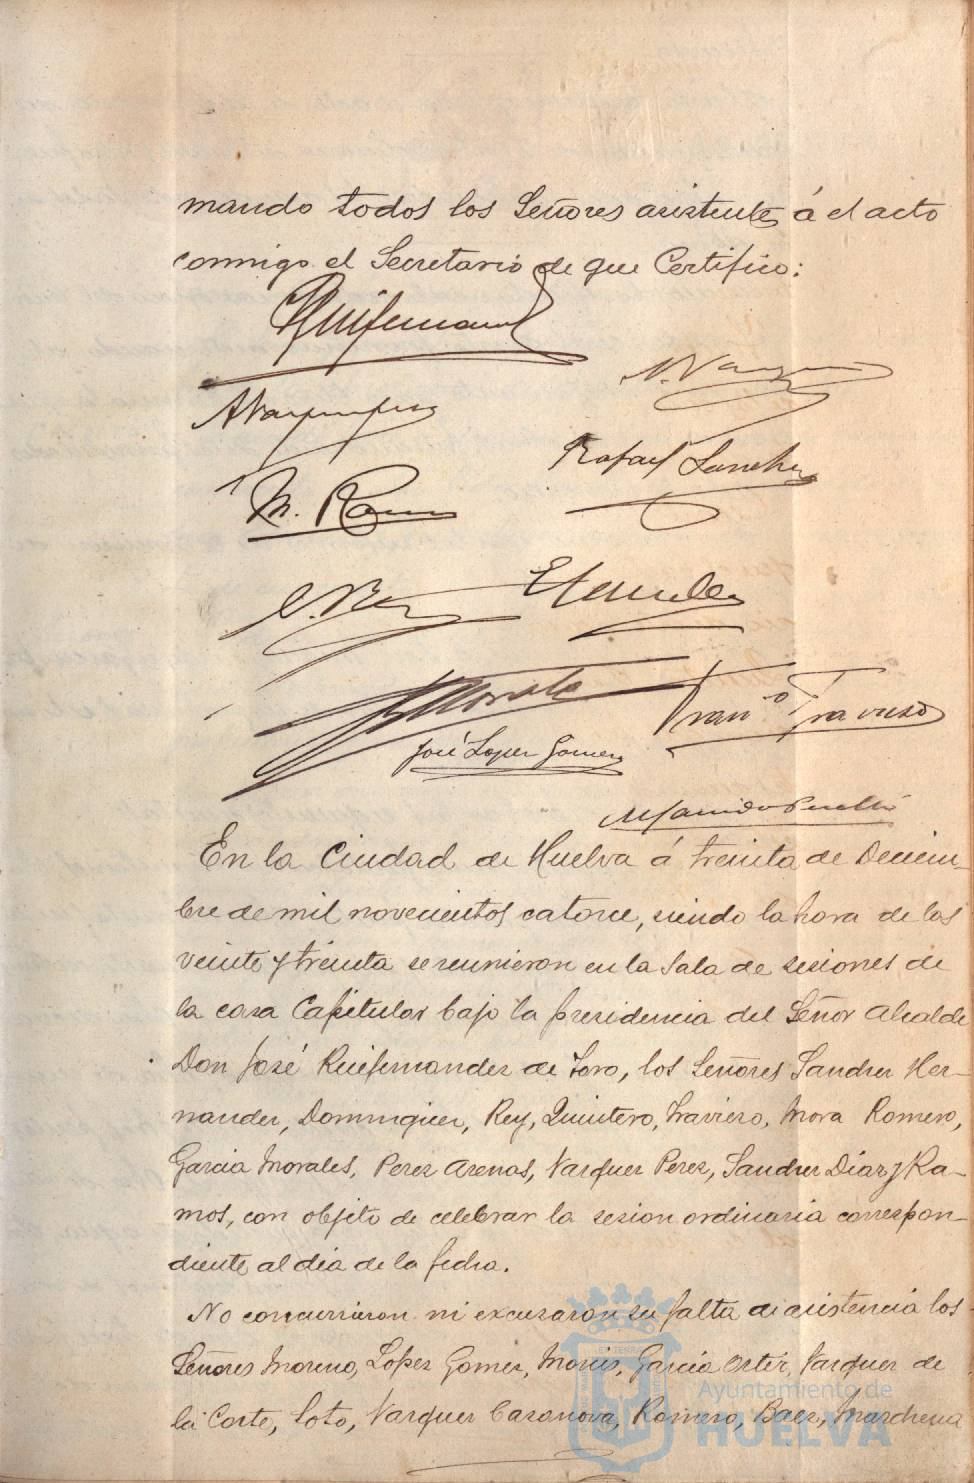 mando todos los Señores asistentes á el acto
conmigo el Secretario de que Certifico:
M. Ramos
Rafael Sanchez
Franco Travieso
José Lopez Gomez
En la Ciudad de Huelva á treinta de Deciem-
bre de mil novecientos catorce, siendo la hora de las
veinte y treinta se reunieron en la Sala de sesiones de
la casa Capitular bajo la presidencia del Señor Alcalde
Don José Ruifernandez de Toro, los Señores Sanchez Her-
nandez, Dominguez, Rey, Quintero, Travieso, Mora Romero,
Garcia Morales, Perez Arenas, Vazquez Perez, Sanchez Diaz y Ra-
mos, con objeto de celebrar la sesion ordinaria correspon-
diente al dia de la fecha.
No concurrieron ni excusaron su falta de asistencia los
Señores Moreno, Lopez Gomez, Monis, Garcia Ortiz, Vazquez de
la Corte, Soto, Vazquez Casanova, Romero, Baez, Marchena
Ayuntamiento de
HUELVA